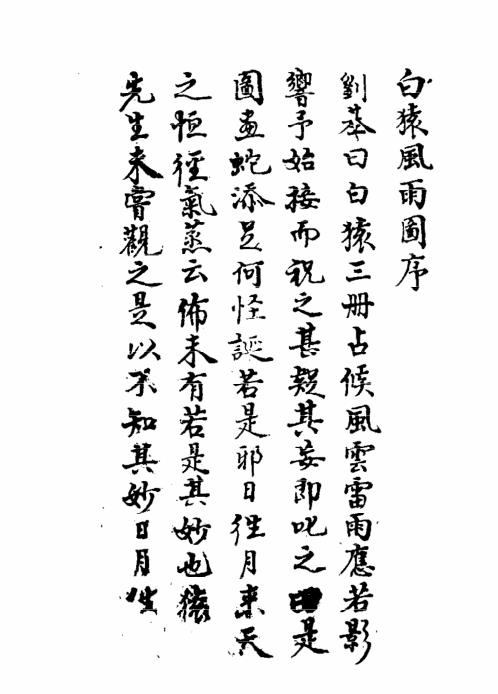 白猿風雨圖序
劉基曰白猿三冊占候風雲雷雨應若影
響予始接而視之甚疑其妄即叱之曰是
圖畫蛇添足何怪誕若是耶日往月来天
之恒徑氣蒸云佈未有若是其妙也猿
先生未嘗觀之是以不知其妙日月往